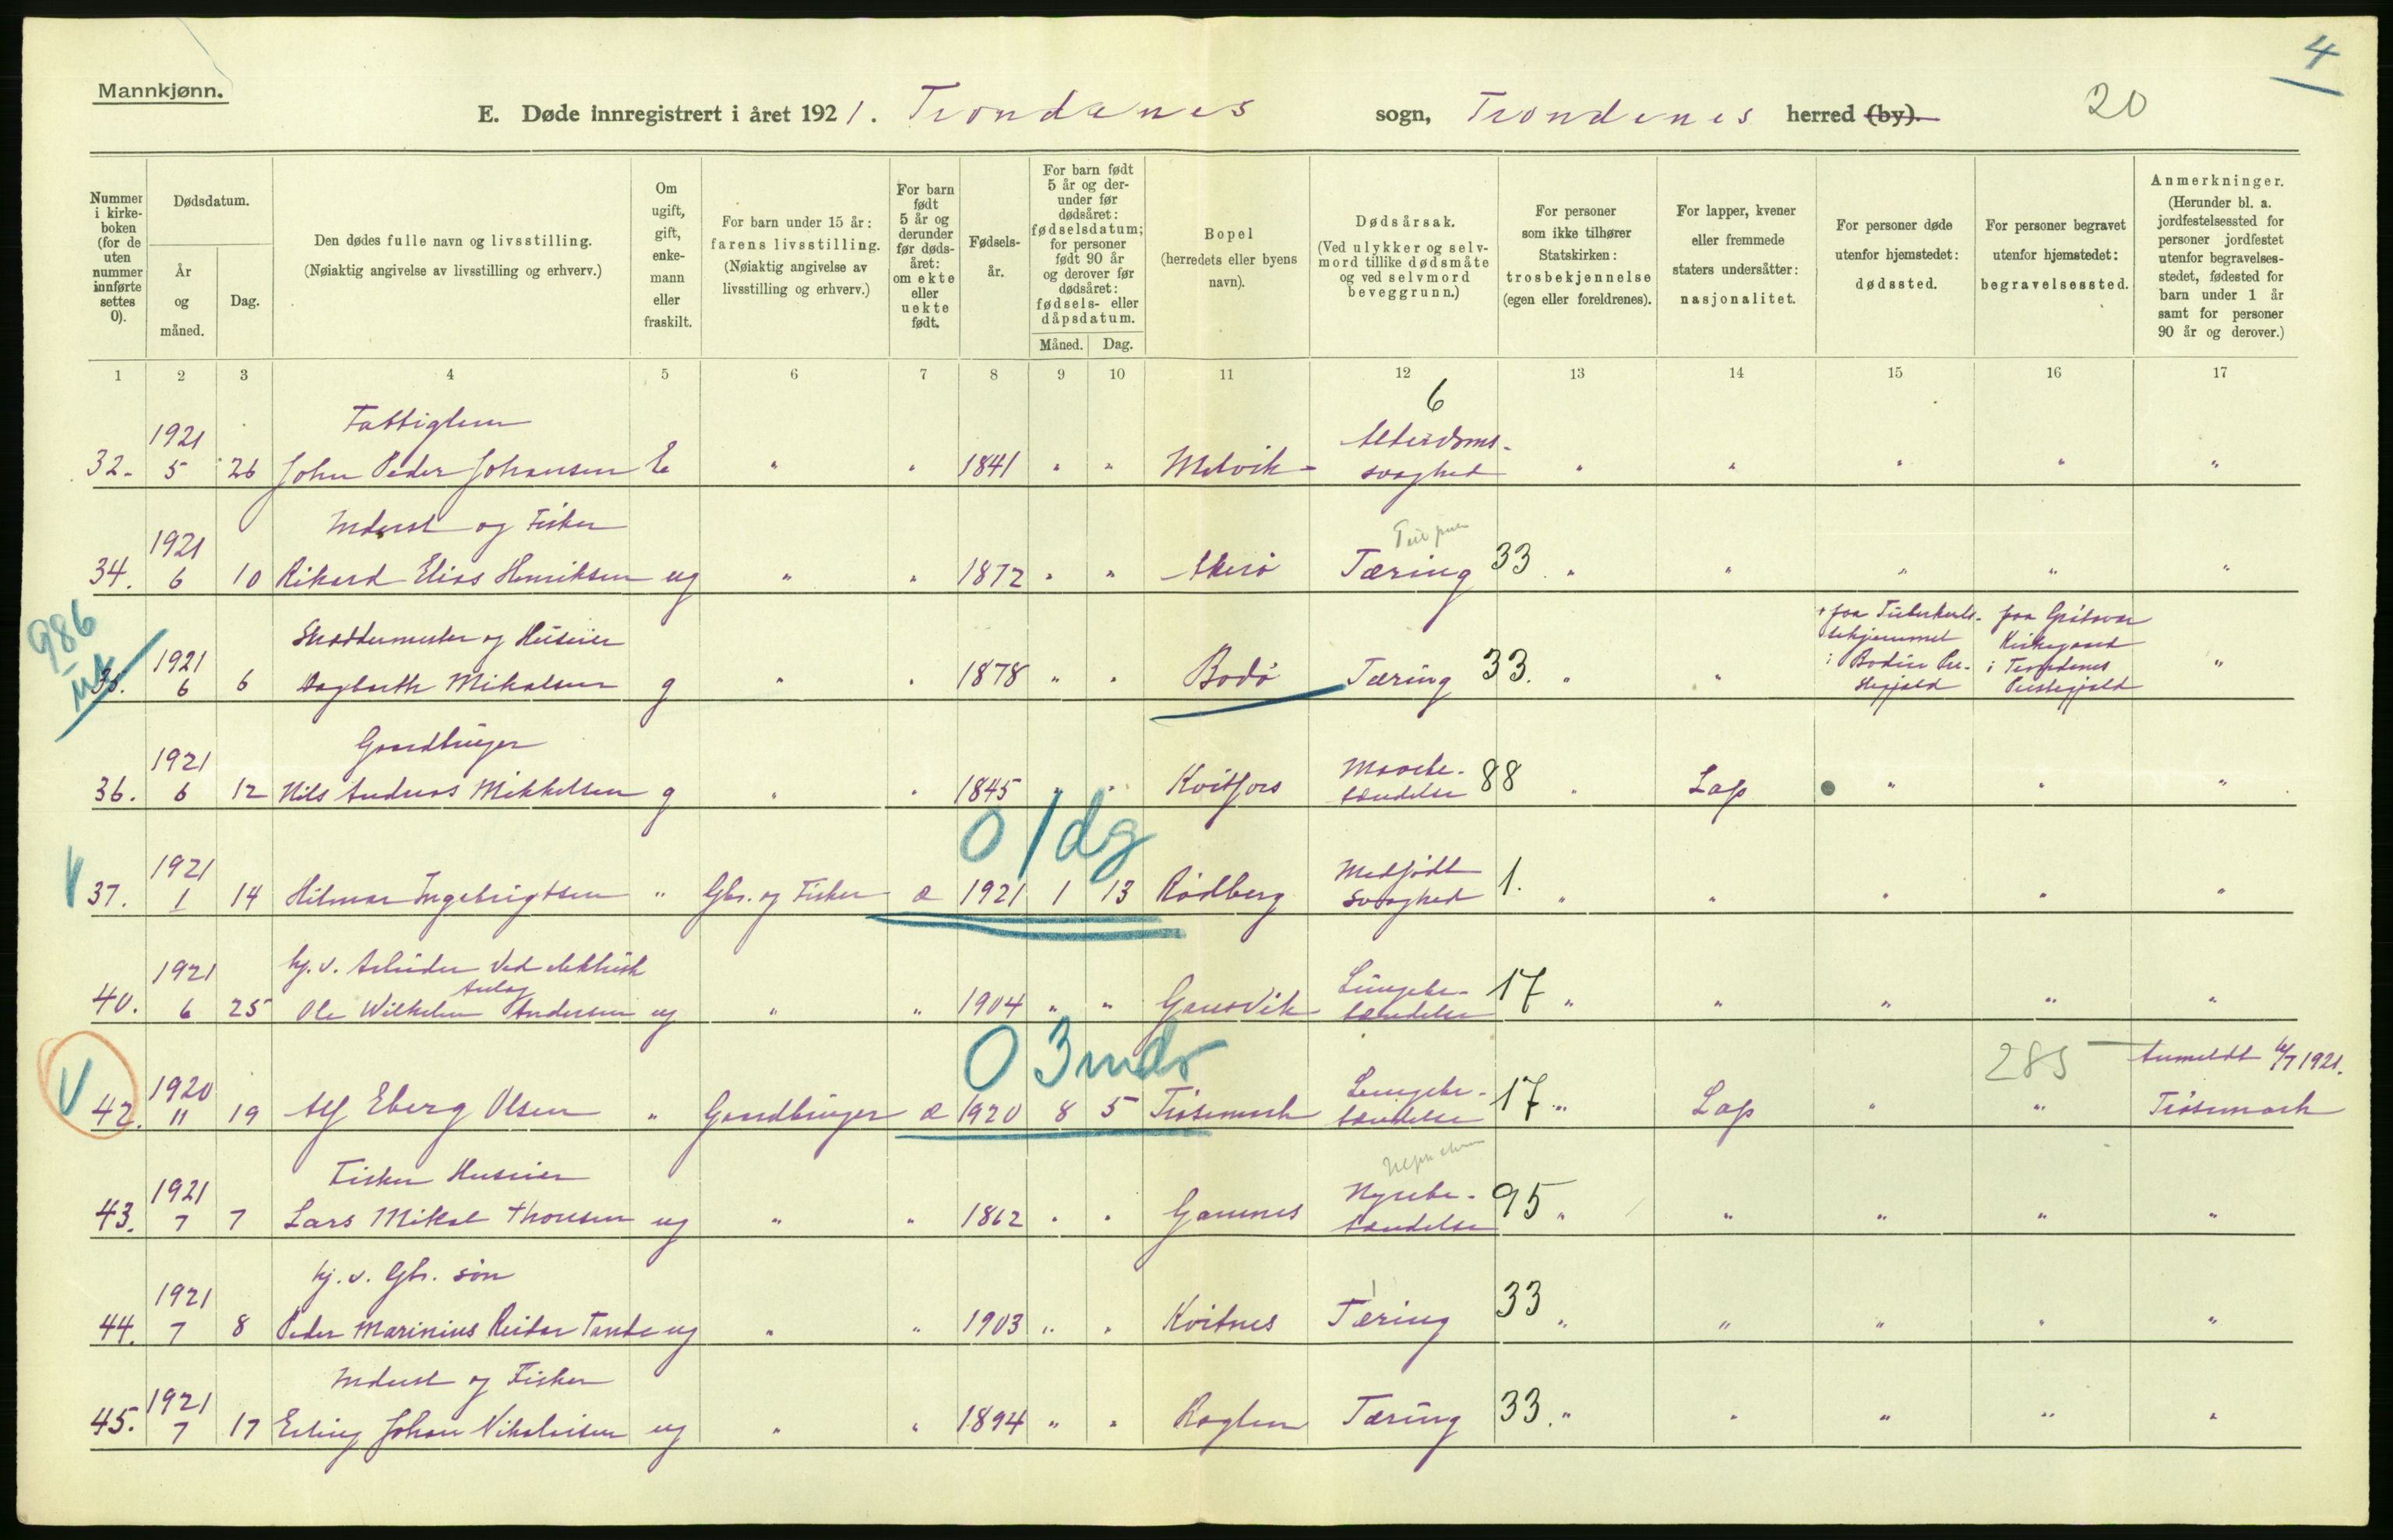 4
Mannkjønn.
E. Døde innregistrert i året 1921. Trondenes sogn, Trondenes herred (by). 20
Nummer i kirkeboken (for de uten nummer innførte settes 0).
Dødsdatum.
År og måned.
Dag.
Den dødes fulle navn og livsstilling.
(Nøiaktig angivelse av livsstilling og erhverv.)
Om ugift, gift, enkemann eller fraskilt.
For barn under 15 år: farens livsstilling.
(Nøiaktig angivelse av livsstilling og erhverv.)
For barn født 5 år og derunder før dødsåret: om ekte eller uekte født.
Fødselsår.
For barn født 5 år og derunder før dødsåret: fødselsdatum; for personer født 90 år og derover før dødsåret: fødsels- eller dåpsdatum.
Måned. Dag.
Bopel
(herredets eller byens navn).
Dødsårsak.
(Ved ulykker og selvmord tillike dødsmåte og ved selvmord beveggrunn.)
For personer som ikke tilhører Statskirken: trosbekjennelse (egen eller foreldrenes).
For lapper, kvener eller fremmede staters undersåtter: nasjonalitet.
For personer døde utenfor hjemstedet: dødssted.
For personer begravet utenfor hjemstedet: begravelsessted.
Anmerkninger.
(Herunder bl. a. jordfestelsessted for personer jordfestet utenfor begravelsesstedet, fødested for barn under 1 år samt for personer 90 år og derover.)
1 2 3 4 5 6 7 8 9 10 11 12 13 14 15 16 17
6
1921 Fattiglem Alderdoms-
32. 5 26 John Peder Johansen E " " 1841 " " Melvik svaghed " " " " "
1921 Inderst og Fisker
34. 6 10 Rikard Elias Henriksen ug " " 1872 " " Akerø Tæring 33 " " " " "
986
1921 Skreddermester og Huseier + paa Tuberkulosehjemmet i Bodin Prestegjeld paa Grøtavær Kirkegaard i Trondenes Prestegjeld
35. 6 6 Dagbarth Mikalsen g " " 1878 " " Bodø Tæring 33. " " "
1921 Gaardbruger Mavebe-
36. 6 12 Nils Andreas Mikkelsen g " " 1845 " " Kvitfors tændelse 88 " Lap " " "
0 1 dg
1921 Medfødt
V 37. 1 14 Hilmar Ingebrigtsen " Gbr. og Fisker æ 1921 1 13 Rødberg svaghed 1. " " " " "
1921 hj. v. Arbeider ved elektrisk Anlæg Lungebe-
40. 6 25 Ole Wilhelm Andersen ug " " 1904 " " Gausvik tændelse 17 " " " " "
0 3 mdr
1920 Lungebe- 285 Anmeldt 1921.
V 42. 11 19 Alf Eberg Olsen " Gaardbruger æ 1920 8 5 Trøsemark tændelse 17 " Lap " " Trøsemark
1921 Fisker Huseier Nyrebe-
43. 7 7 Lars Mikal Thoresen ug " " 1862 " " Gamnes tændelse 95 " " " " "
1921 hj. v. Gbr. søn
44. 7 8 Peder Marinius Reidar Tande ug " " 1903 " " Kvitnes Tæring 33 " " " " "
1921 Inderst og Fisker
45. 7 17 Erling Johan Nikolaisen ug " " 1894 " " Roglen Tæring 33. " " " " "